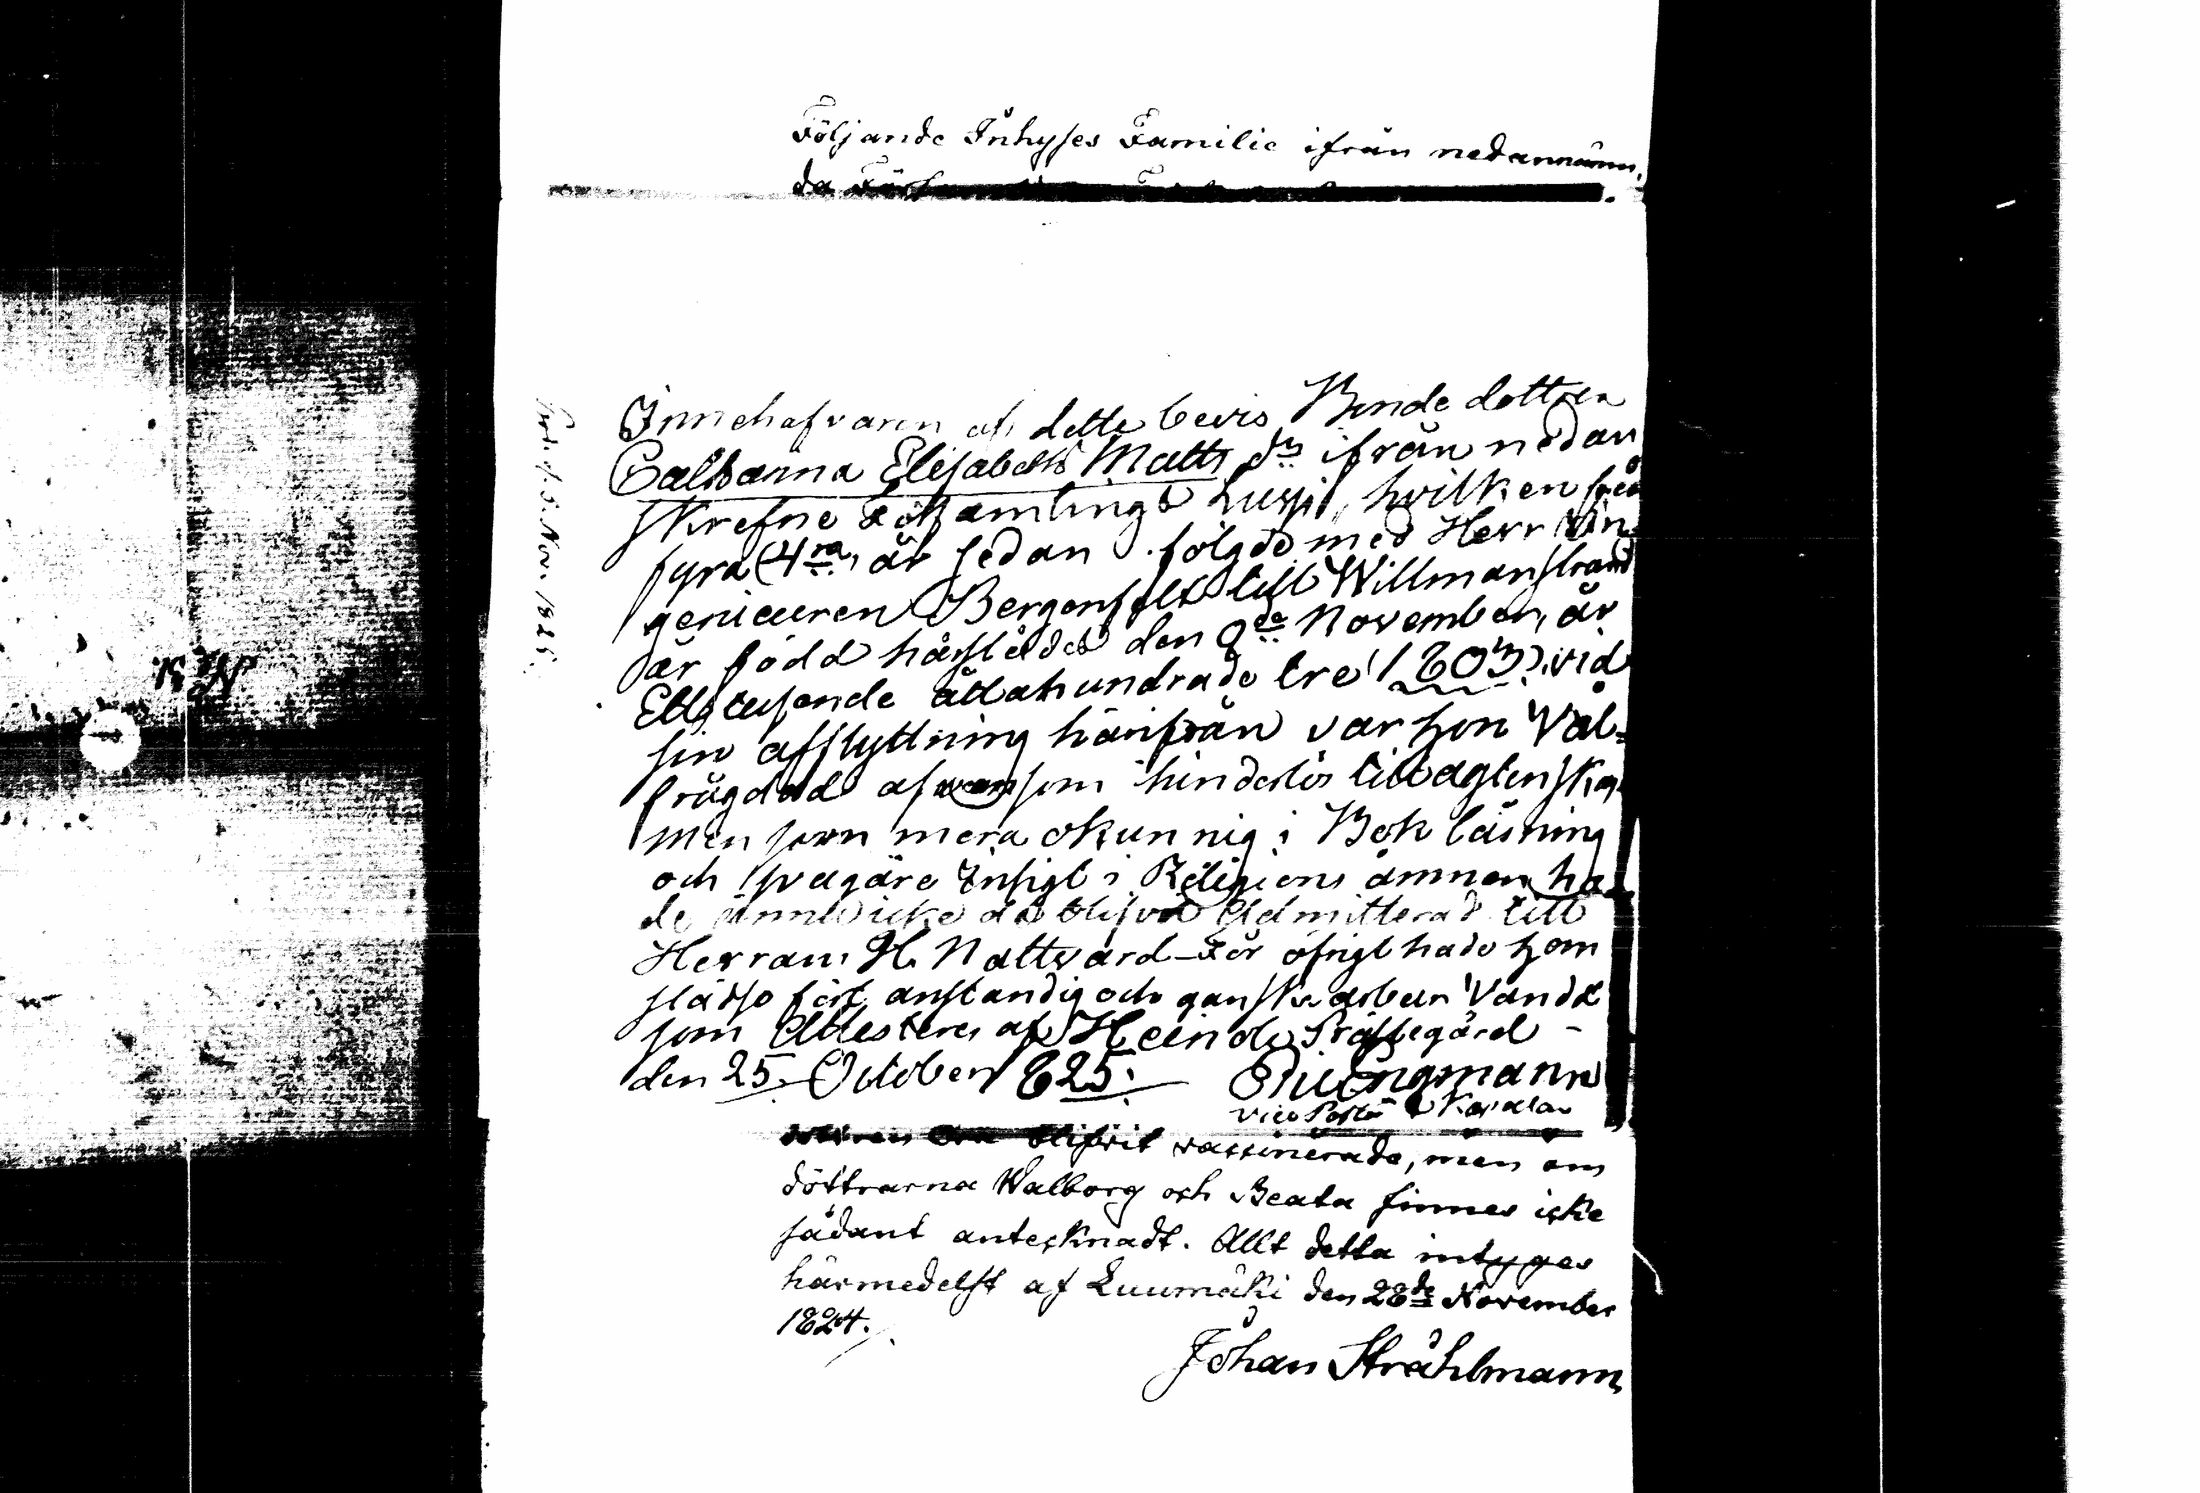 Följande Inhyses Familie ifrån nedannämn,
da
Innehafvaren af detta bevis Bonde dottren
Catharina Elisabeth Matts dr ifrån nedan
skrefne Församlings hvilken för
fyra (4ra) år sedan följde med Herr In
genieuren Bergenfelt till Willmanstrand
är född härstädes den 9de November, år
Ettstusende åttahundrade tre (1803). vid
sin afflyttning härifrån var hon Väl=
frägdad afven som hinderlös tillägtenskap
men som mera okunnig i Bok läsning
och svagare Insigt i Religions ämnen ha
de ännu icke då blifvit Admitterad till
Herrans H. Nattvard – För öfrigt hade hon
städse fört anständig och ganska ärbar Vandel
som attesteras af Heinola Prästegård –
den 25. October 825. Ringmann
vice Pastor
blifvit vaccinerade, men om
döttrarna Walborg och Beata finnes icke
sådant antecknadt. Allt detta intygas
härmedelst af Luumäki den 28de November
1824.
Johan Stråhlmann
Nov. 1825.
№